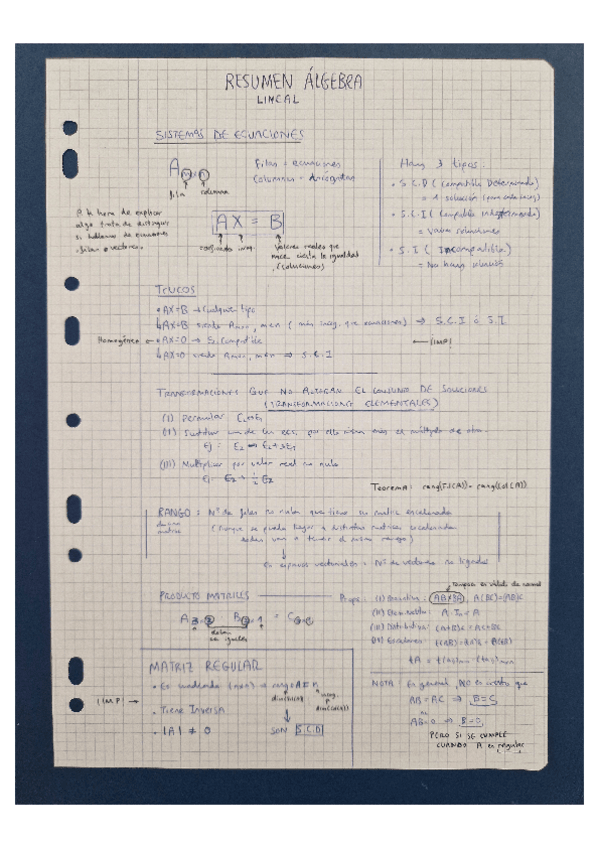 RESUMEN ÁLGEBRA
LINEAL
SISTEMAS DE ECUACIONES
A m×n
fila columna
Filas = ecuaciones
Columnas = Incógnitas
A la hora de explicar
algo trata de distinguir
si hablamos de ecuaciones
, filas o vectores.
AX = B
incog.
Valores reales que
hace cierta la igualdad
(soluciones)
Hay 3 tipos:
• S.C.D (Compatible Determinado)
= 1 solución
• S.C.I (Compatible indeterminado)
= Varias soluciones
• S.I (Incompatible)
= No hay solución
TRUCOS
• AX=B → Cualquier tipo
↳ AX=B siendo Am×n, m<n (más incog. que ecuaciones) ⇒ S.C.I ó S.I
Homogéneo • AX=0 → S. Compatible
← ¡IMP!
↳ AX=0 siendo Am×n, m<n ⇒ S.C.I
TRANSFORMACIONES QUE NO ALTERAN EL CONJUNTO DE SOLUCIONES
(TRANSFORMACIONES ELEMENTALES)
(I) Permutar
(II) Sustituir una de las ecs. por ella misma más el múltiplo de otra.
Ej:
(III) Multiplicar por valor real no nulo
Ej:
Teorema: rang(Fil(A)) = rang(Col(A))
RANGO: Nº de filas no nulas que tiene la matriz escalonada
de una
matriz
(Aunque se pueda llegar a distintas matrices escalonadas
todas van a tener el mismo rango)
En espacios vectoriales = Nº de vectores no ligados
PRODUCTO MATRICES
deben
ser iguales
Tampoco es válida la normal
Props:
(I) Asociativa: AB≠BA, A(BC)=(AB)C
(II) Elem. neutro: A·In = A
(III) Distributiva: (A+B)C = AC+BC
(IV) Escalares:
MATRIZ REGULAR
• Es cuadrada (n×n) → rang A = n
¡IMP! →
• Tiene Inversa
• |A| ≠ 0
SON S.C.D
NOTA: En general, NO es cierto que
AB = AC ⇒ B=C
AB=0 ⇒ B=0
PERO SI SE CUMPLE
CUANDO A es regular